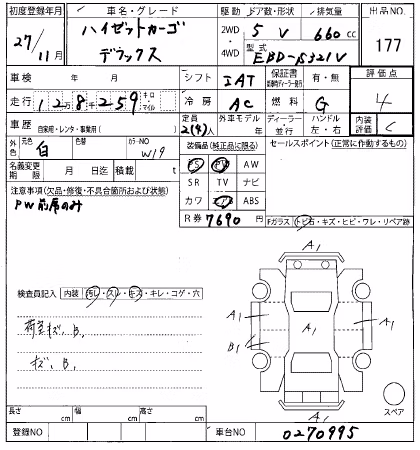 初度登録年月 車名・グレード 駆動 ドア数・形状 排気量 出品NO.
27/11月 ハイゼットカーゴ デラックス 2WD 4WD 5 V 660 cc 177
型式 EBD-S321V
車検 年 月 シフト IAT 保証書 有・無 評価点
走行 12万8千259 キロ マイル 冷房 AC 燃料 G 4
車歴 自家用・レンタ・事業用( ) 定員 2(4)人 外車モデル 年 ディーラー 並行 ハンドル 左・右 内装評価 C
外色 元色 白 色替 カラーNO W19 装備品(純正品に限る) セールスポイント(正常に作動するもの)
名義変更期限 月 日迄 積載 t PS PW AW
注意事項(欠品・修復・不具合箇所および状態) SR TV ナビ
PW前席のみ カワ エアB ABS
R券 7690 円 Fガラス(トビ石・キズ・ヒビ・ワレ・リペア跡)
検査員記入 内装(汚レ・スレ・キズ・キレ・コゲ・穴)
A1
荷室キズ、B、
A1 A1 A1
キズ、B、
B1
スペア
A1
長さ cm 幅 cm 高さ cm
登録NO 車台NO 0270995